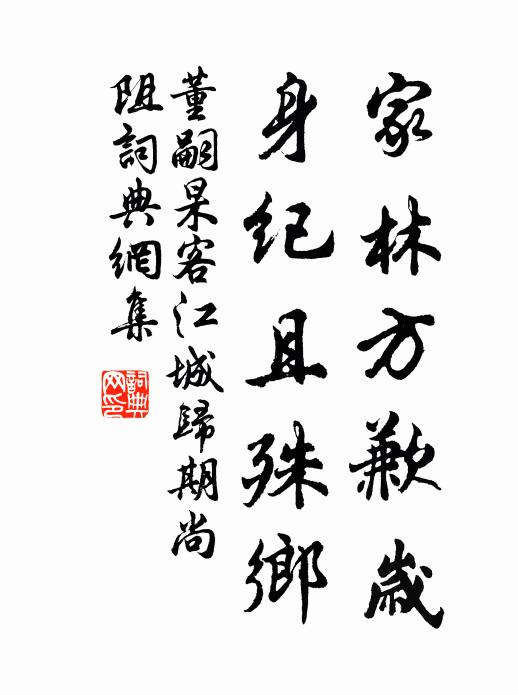 家林方歉歲
身纪且殊鄉
董嗣杲客江城歸期尚
阻詞典網集
詞典
网印